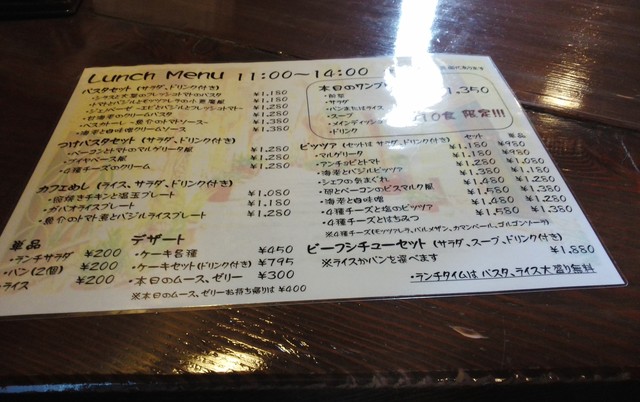 Lunch Menu 11:00～14:00
パスタセット (サラダ、ドリンク付き)
・シラスと大葉のフレッシュトマトのパスタ ¥1,180
・トマトとバジルとモッツァレラの小悪魔風 ¥1,180
・ジェノベーゼ ~エビとバジルとフレッシュトマト~ ¥1,280
・甘海老のクリームパスタ ¥1,280
・ペスカトーレ ~魚介のトマトソース~ ¥1,380
・海老と白味噌クリームソース ¥1,380
つけパスタセット (サラダ、ドリンク付き)
・ベーコンとトマトのマルゲリータ風 ¥1,280
・ブイヤベース風 ¥1,280
・4種チーズのクリーム ¥1,280
カフェめし (ライス、サラダ、ドリンク付き)
・塩焼きチキンと温玉プレート ¥1,080
・ガパオライスプレート ¥1,180
・魚介のトマト煮とバジルライスプレート ¥1,280
単品
・ランチサラダ ¥200
・パン(2個) ¥200
・ライス ¥200
デザート
・ケーキ各種 ¥450
・ケーキセット(ドリンク付き) ¥795
・本日のムース、ゼリー ¥300
※本日のムース、ゼリーお持ち帰りは ¥400
本日のワンプ ¥1,350
・前菜
・サラダ
・パンまたはライス
・スープ
・メインディッシュ
・ドリンク
10食 限定!!!
ピッツァ (セットは サラダ、ドリンク付き) セット 単品
・マルゲリータ ¥1,180 ¥980
・アンチョビとトマト ¥1,180 ¥980
・海老とバジルピッツァ ¥1,480 ¥1,280
・シェフの気まぐれ ¥1,380 ¥1,180
・卵とベーコンのビスマルク風 ¥1,480 ¥1,280
・海老と白味噌 ¥1,580 ¥1,380
・4種チーズと塩のピッツァ ¥1,480 ¥1,280
・4種チーズとはちみつ ¥1,580 ¥1,380
※4種チーズ(モッツァレラ、パルメザン、カマンベール、ゴルゴンゾーラ)
ビーフシチューセット (サラダ、スープ、ドリンク付き) ¥1,880
※ライスかパンを選べます
・ランチタイムは パスタ、ライス大盛り無料